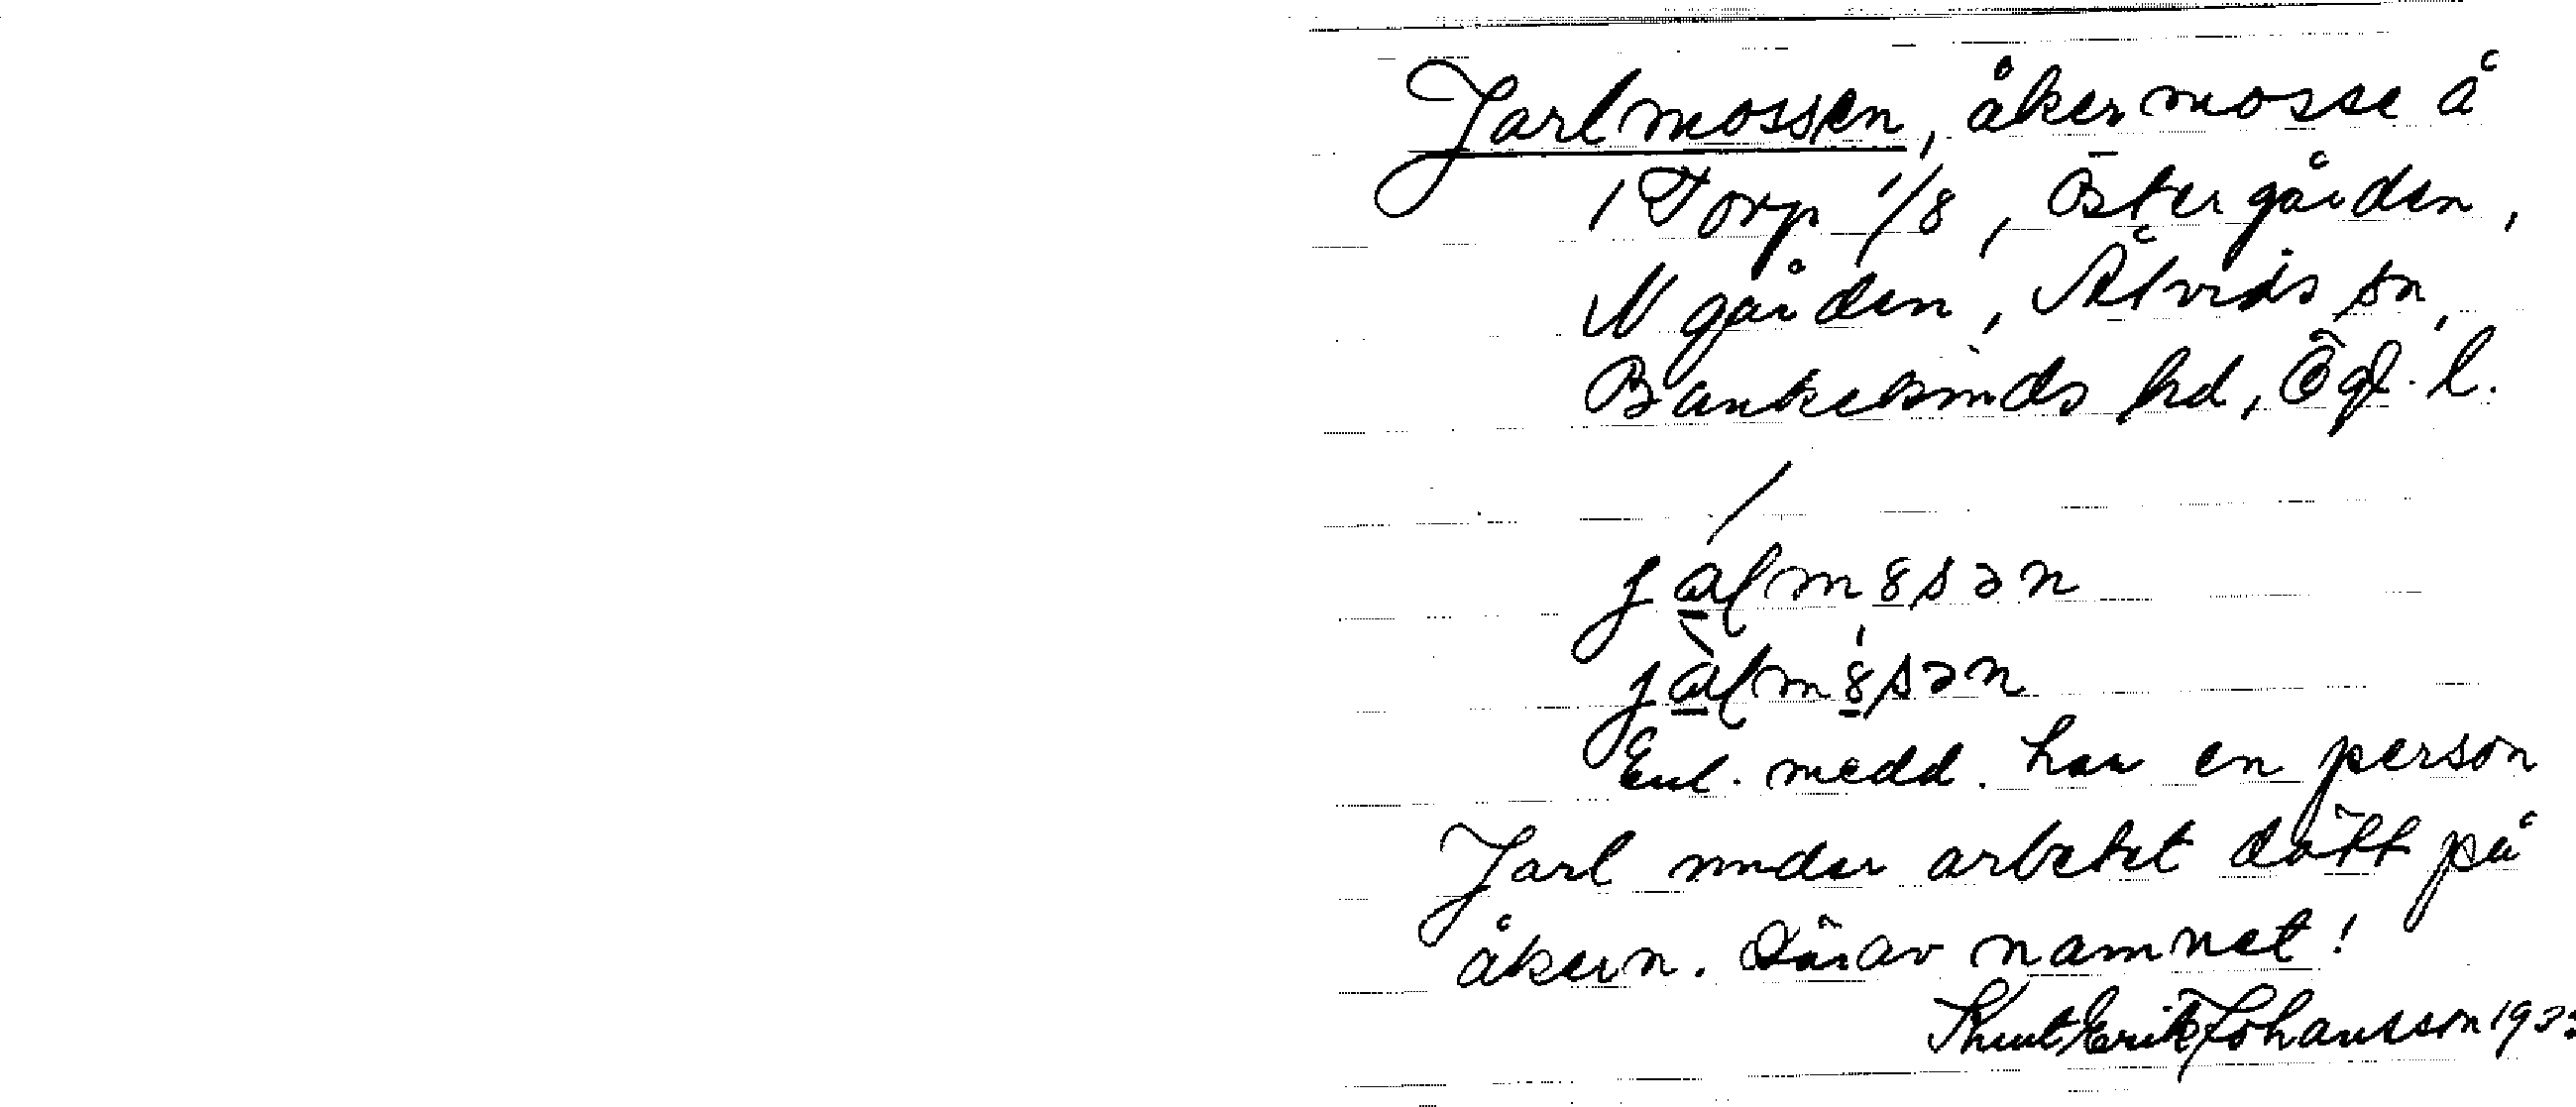 Jarlmossen, åkermosse å
1 Torp 1/8, Östergården,
N gården, Åtvids sn,
Bankekinds hd, Ögl. l.
jalm8sən
jalm8sən
Enl. medd. har en person
Jarl under arbetet dött på
åkern. Därav namnet!
Knut Erik Johansson